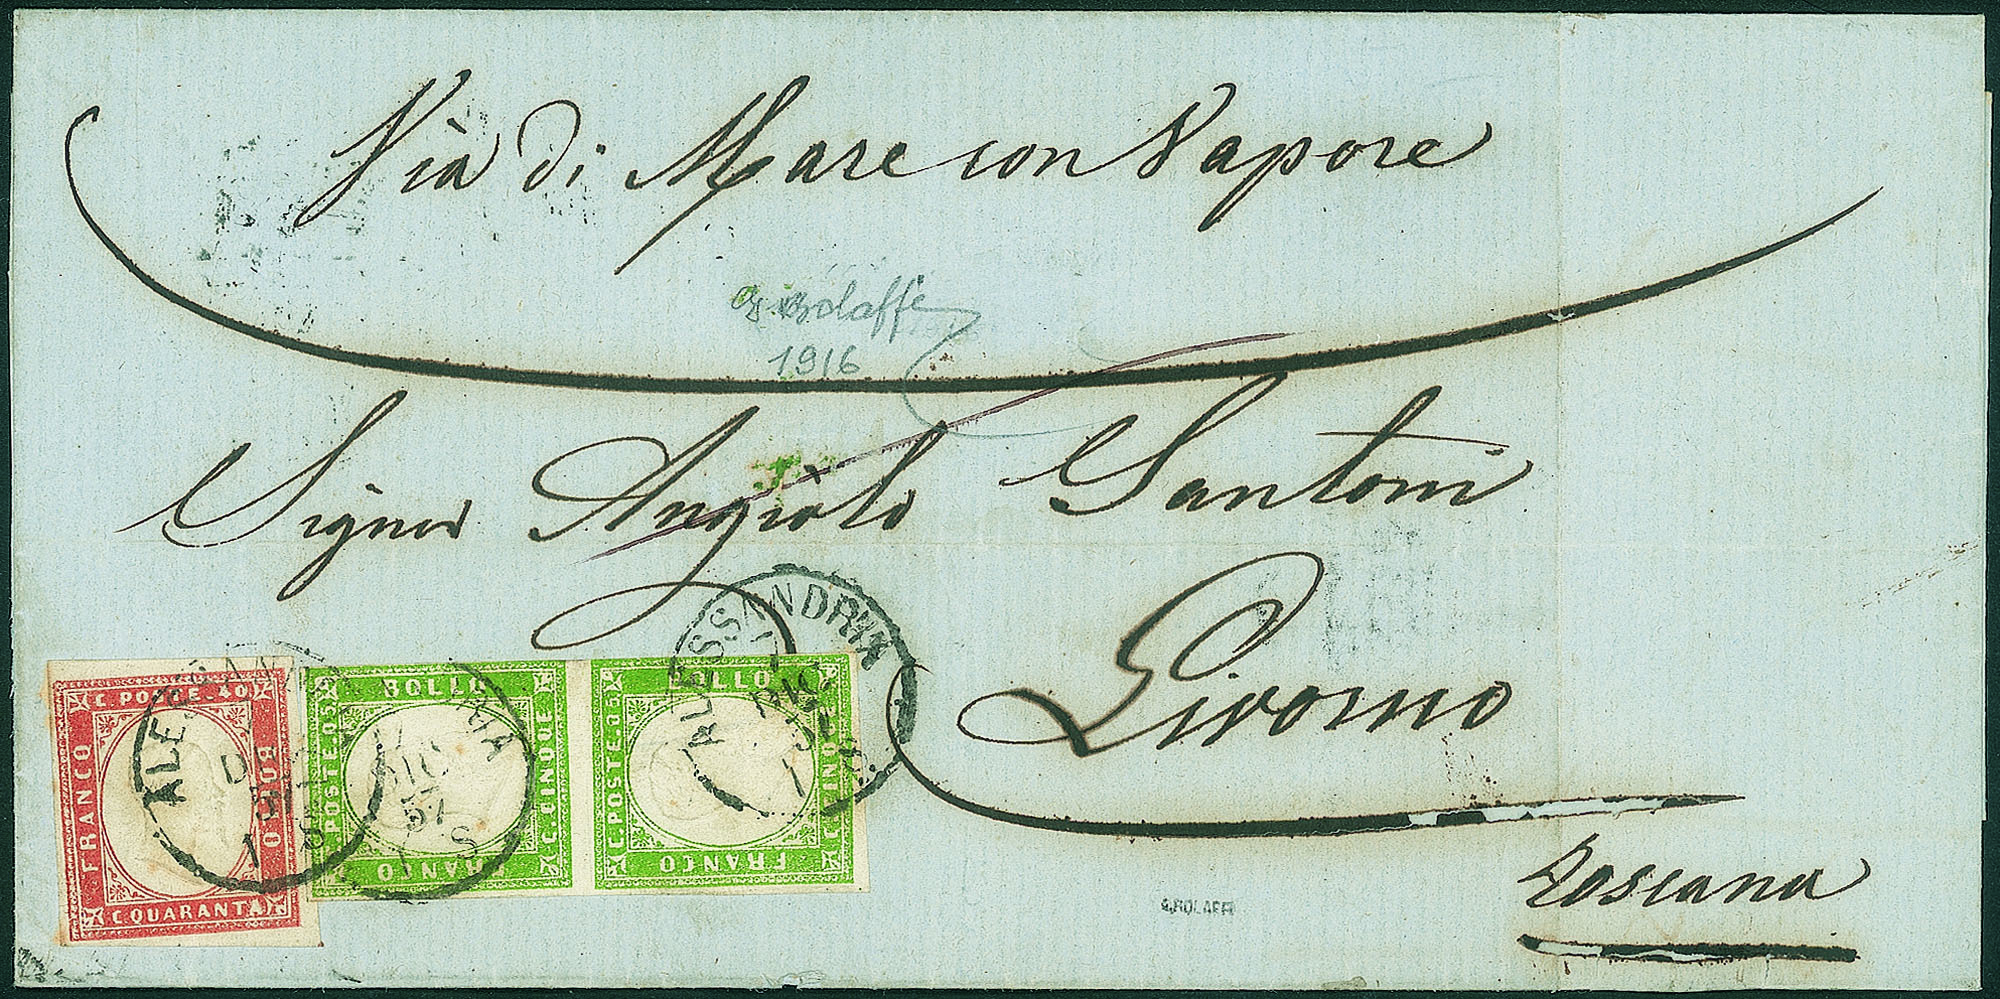 Via di Mare con Vapore
G. Bolaffi
1916
Signor Angiolo Santoni
Livorno
Toscana
ALESSANDRIA
DIC
57
1 S
ALESSANDRIA
DIC
57
1 S
ALESSANDRIA
C. POSTE. 40
FRANCO
BOLLO
C. QUARANTA
BOLLO
C. POSTE. 05
C. CINQUE
FRANCO
BOLLO
C. POSTE. 05
FRANCO
G. BOLAFFI